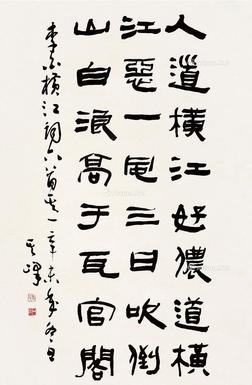 人道橫江好儂道橫
江惡一風三日吹倒
山白浪高于瓦官閣
李白橫江詞六首其一辛未